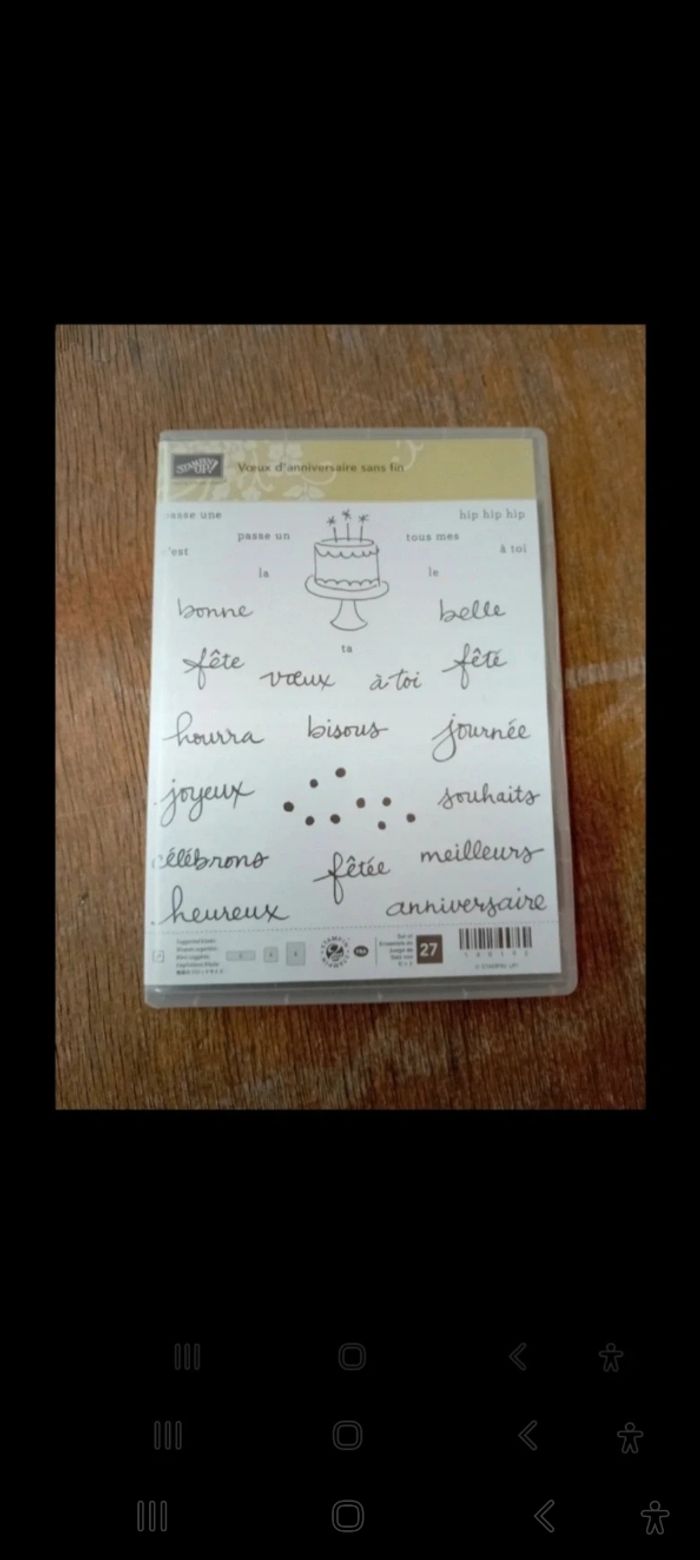 STAMPIN' UP!
Vœux d'anniversaire sans fin
passe une
hip hip hip
passe un
tous mes
c'est
à toi
la
le
bonne
belle
ta
fête
vœux
à toi
fêté
hourra
bisous
journée
joyeux
souhaits
célébrons
fêtée
meilleurs
heureux
anniversaire
27
© STAMPIN' UP!